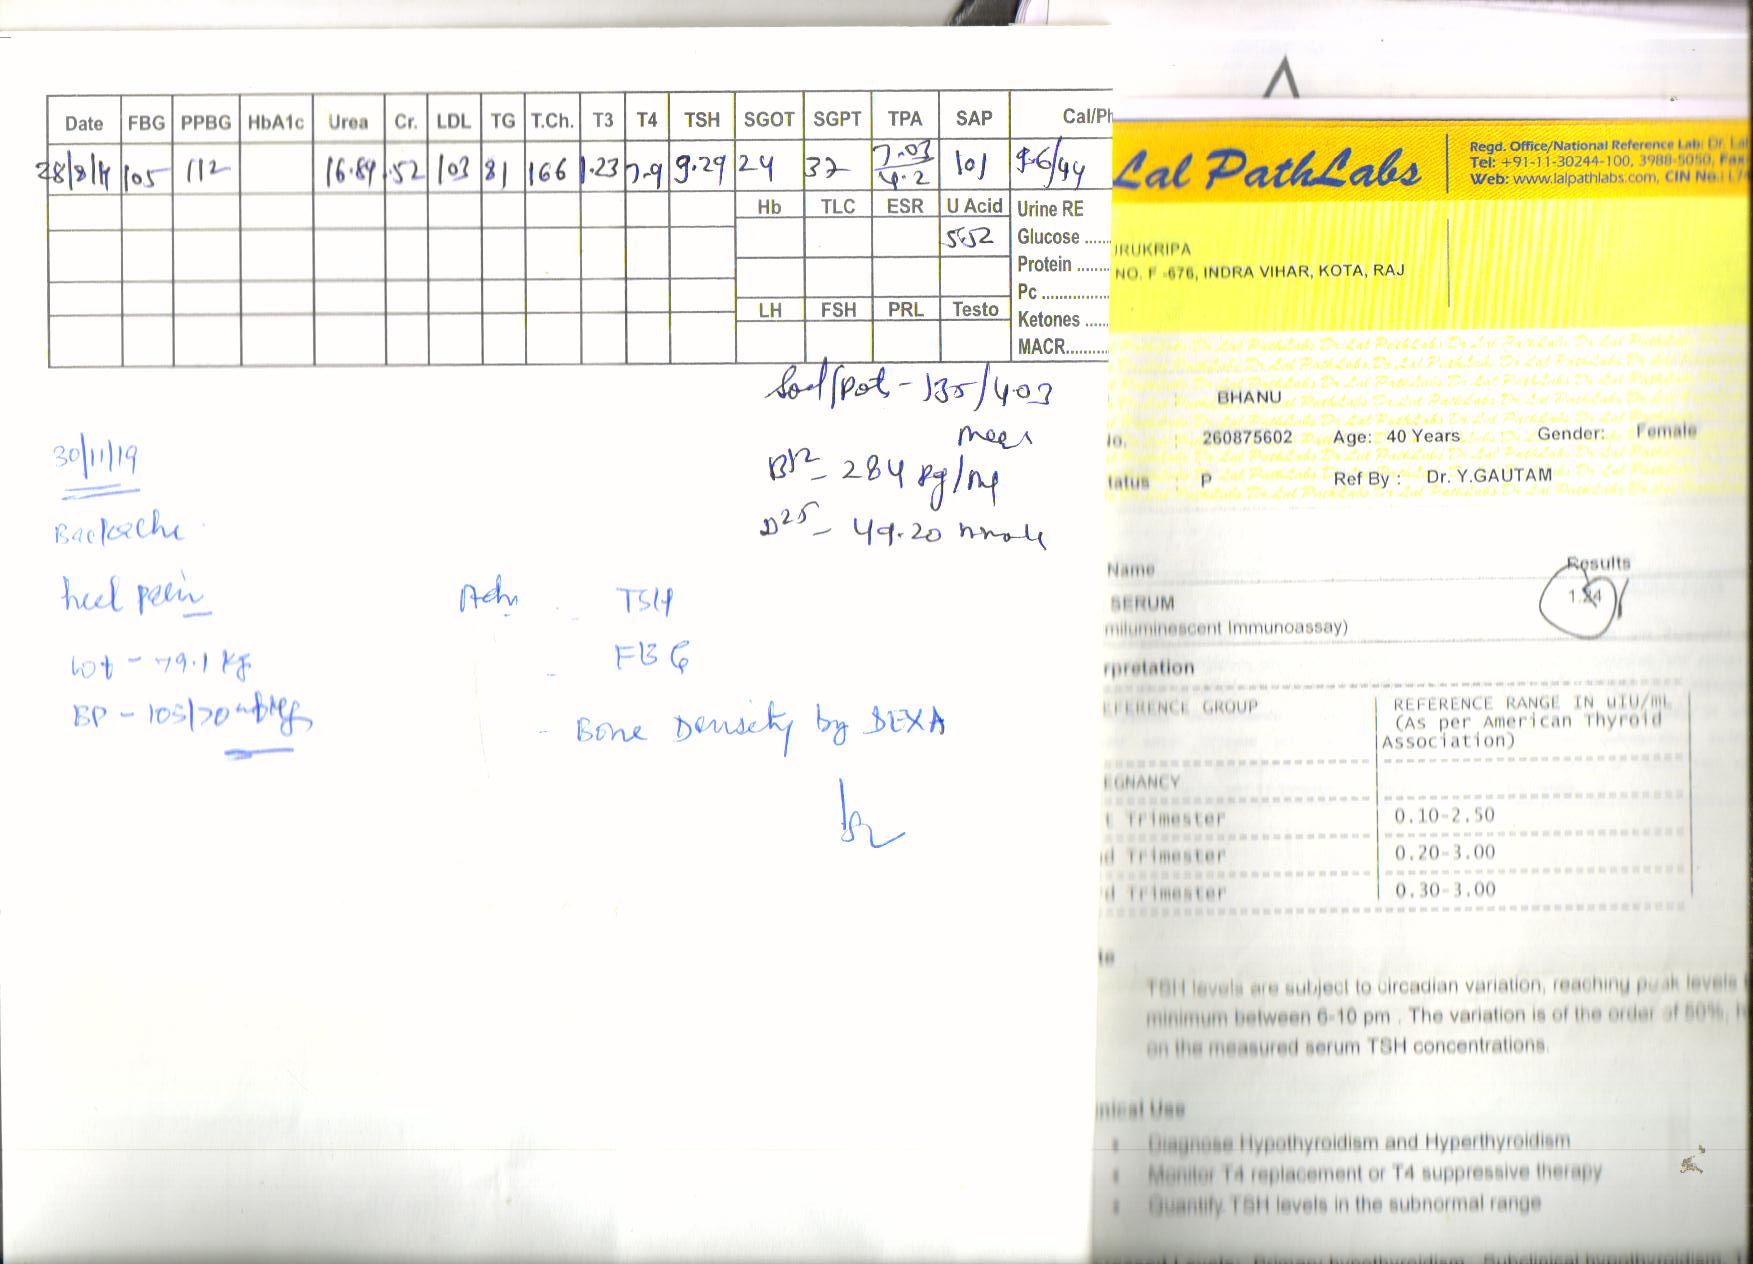 Date FBG PPBG HbA1c Urea Cr. LDL TG T.Ch. T3 T4 TSH SGOT SGPT TPA SAP Cal/Ph
105 112 16.89 .52 103 81 166 1.23 7.9 9.29 24 32 7.03/4.2 101
Hb TLC ESR U Acid Urine RE
5.52 Glucose ......
Protein ........
Pc ................
LH FSH PRL Testo Ketones ......
MACR..........
Sod/Pot - 135/4.03
B12 - 284 pg/ml
D25 - 49.20
30/11/19
Backache
heel pain
wt - 79.1 kg
BP - 105/70 mmHg
Adv
TSH
- FBG
- Bone Density by DEXA
Lal PathLabs
Regd. Office/National Reference Lab: Dr. Lal
Tel: +91-11-30244-100, 3988-5050, Fax
Web: www.lalpathlabs.com, CIN No.: L74
URUKRIPA
NO. F -676, INDRA VIHAR, KOTA, RAJ
: BHANU
No. : 260875602 Age: 40 Years Gender: Female
tatus : P Ref By : Dr. Y.GAUTAM
Name Results
SERUM 1.24
miluminescent Immunoassay)
rpretation
EFERENCE GROUP REFERENCE RANGE IN uIU/mL
(As per American Thyroid
Association)
EGNANCY
t Trimester 0.10-2.50
d Trimester 0.20-3.00
d Trimester 0.30-3.00
te
TSH levels are subject to circadian variation, reaching peak levels
minimum between 6-10 pm . The variation is of the order of 50%, h
on the measured serum TSH concentrations.
nical Use
Diagnose Hypothyroidism and Hyperthyroidism
Monitor T4 replacement or T4 suppressive therapy
Quantify TSH levels in the subnormal range
Primary hypothyroidism, Subclinical hypothyroidism,